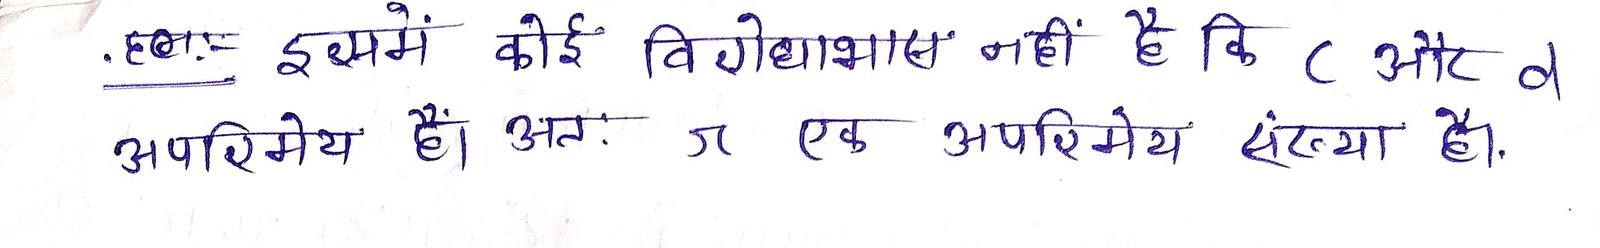 हल:- इसमें कोई विरोधाभास नहीं है कि c और d
अपरिमेय हैं। अतः π एक अपरिमेय संख्या है।